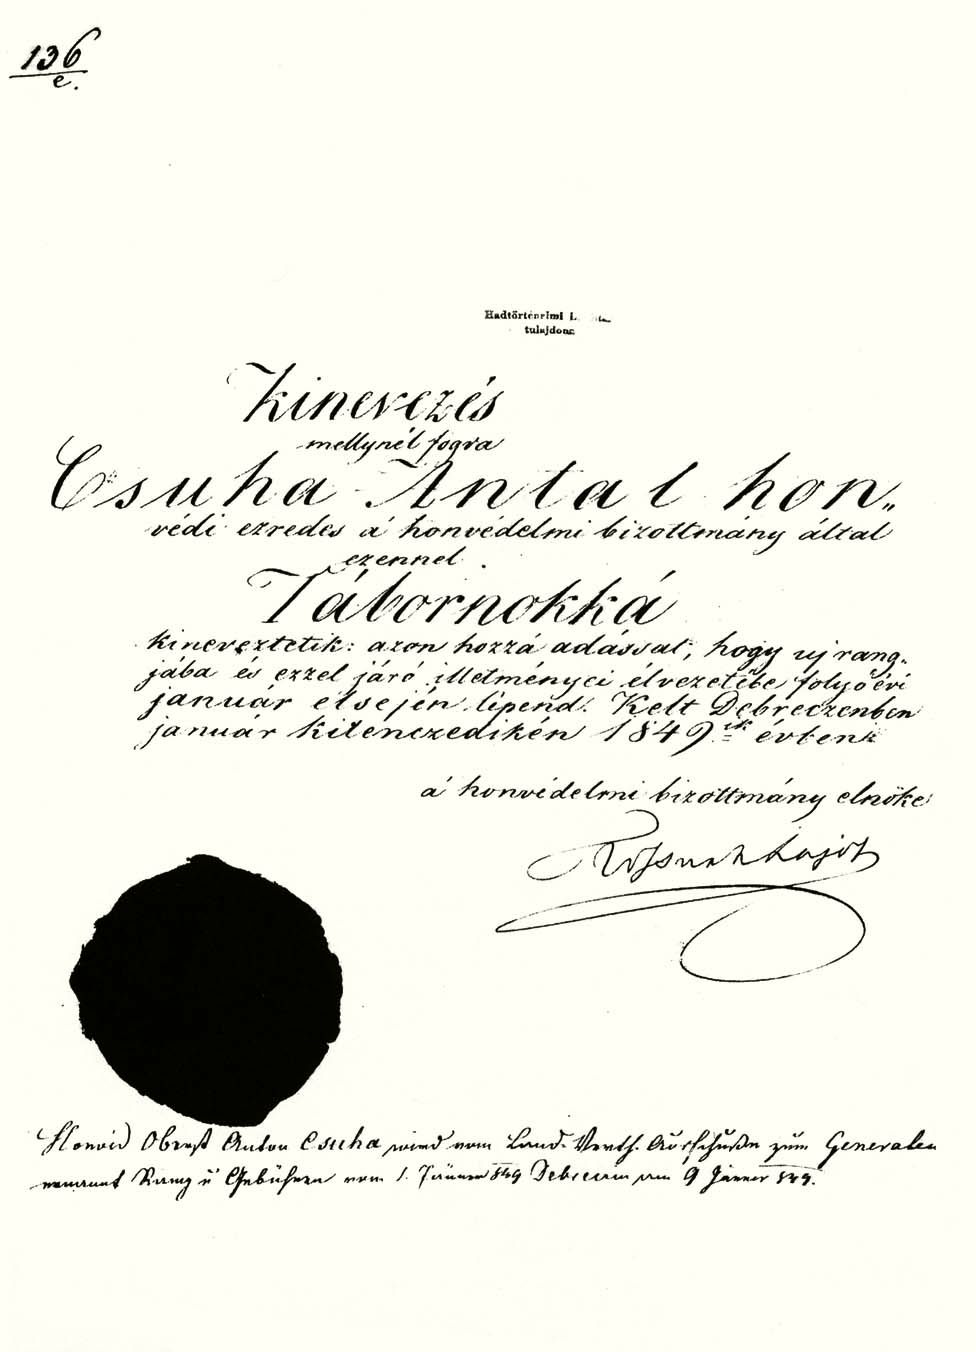 136
e.
Hadtörténelmi L
tulajdona
Kinevezés
mellynél fogva
Csuha Antal hon„
védi ezredes á honvédelmi bizottmány által
ezennel
Tábornokká
kineveztetik: azon hozzá adással, hogy uj rang„
jába és ezzel járó illetményei élvezetébe folyó évi
január elsején lépend. Kelt Debreczenben
január kilenczedikén 1849ik évben
á honvédelmi bizottmány elnöke
Kossuth Lajos
Honvéd Oberst Anton Csuha wird vom Land. Verth. Ausschuße zum Generalen
ernannt Rang u Gebühren vom 1. Jänner 849 Debreczin am 9 Jänner 849.